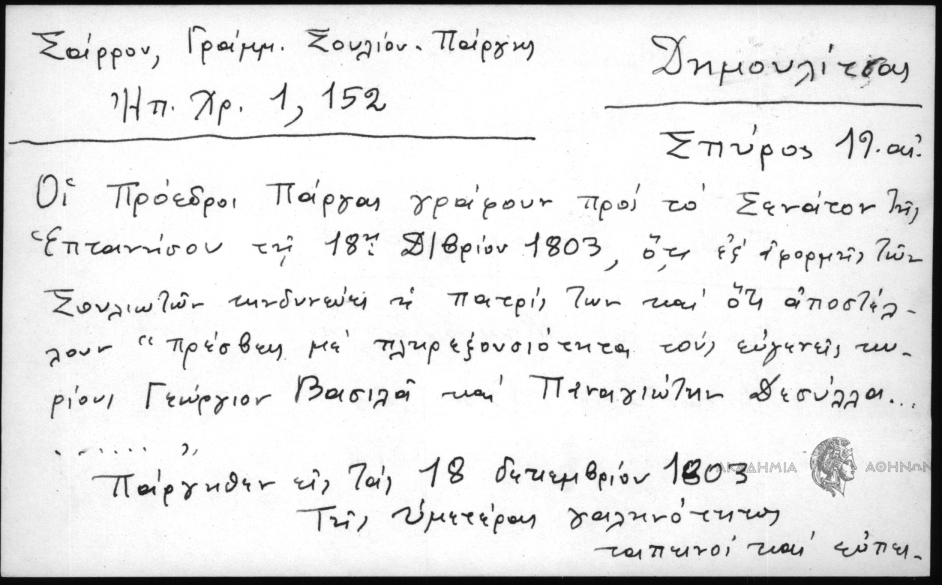 Σάρρου, Γράμμ. Σουλίου-Πάργης
Ἠπ. Χρ. 1, 152
Δημουλίτσας
Σπύρος 19. αἰ.
Οἱ Πρόεδροι Πάργας γράφουν πρός τό Σενάτον τῆς
Ἑπτανήσου τῇ 18ῃ Δ/βρίου 1803, ὅτι ἐξ ἀφορμῆς τῶν
Σουλιωτῶν κινδυνεύει ἡ πατρίς των καί ὅτι ἀποστέλ-
λουν "πρέσβεις μέ πληρεξουσιότητα τούς εὐγενεῖς κυ-
ρίους Γεώργιον Βασιλᾶ καί Παναγιώτην Δεσύλλα...
....... "
Πάργηθεν εἰς τάς 18 δεκεμβρίου 1803
Τῆς ὑμετέρας γαληνότητος
ταπεινοί καί εὐπει-
ΑΚΑΔΗΜΙΑ ΑΘΗΝΩΝ